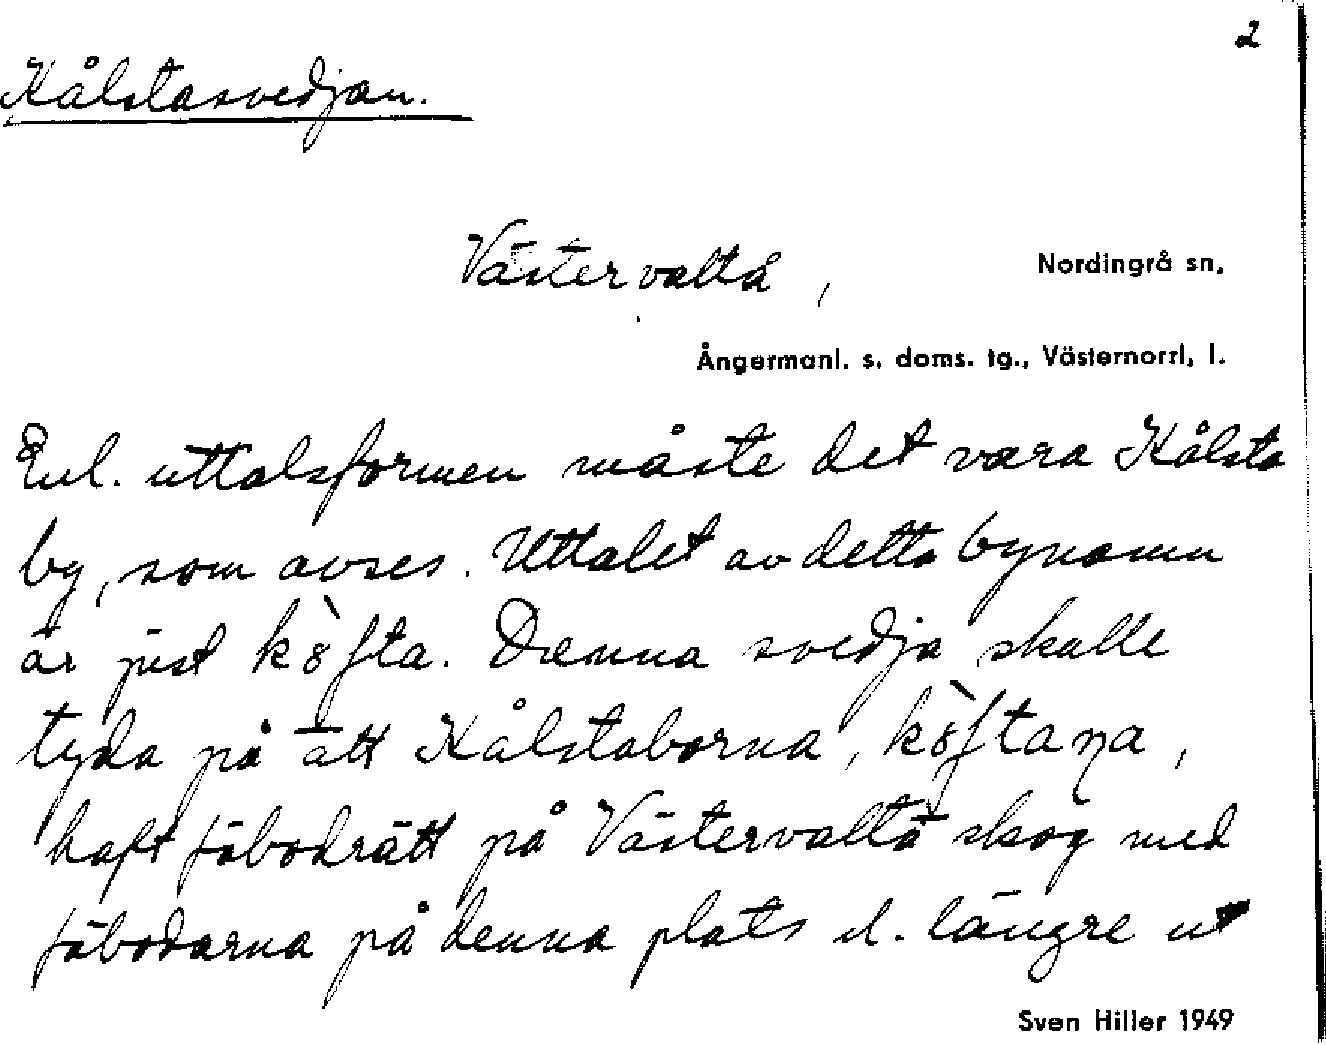 2
Kålstasvedjan.
Västervåltå, Nordingrå sn,
Ångermanl. s. doms. tg., Västernorrl, l.
Enl. uttalsformen måste det vara Kålsta
by, som avses. Uttalet av detta bynamn
är just Denna svedja skulle
tyda på att Kålstaborna,
haft fäbodrätt på Västervåltå skog med
fäbodarna på denna plats el. längre ut
Sven Hiller 1949